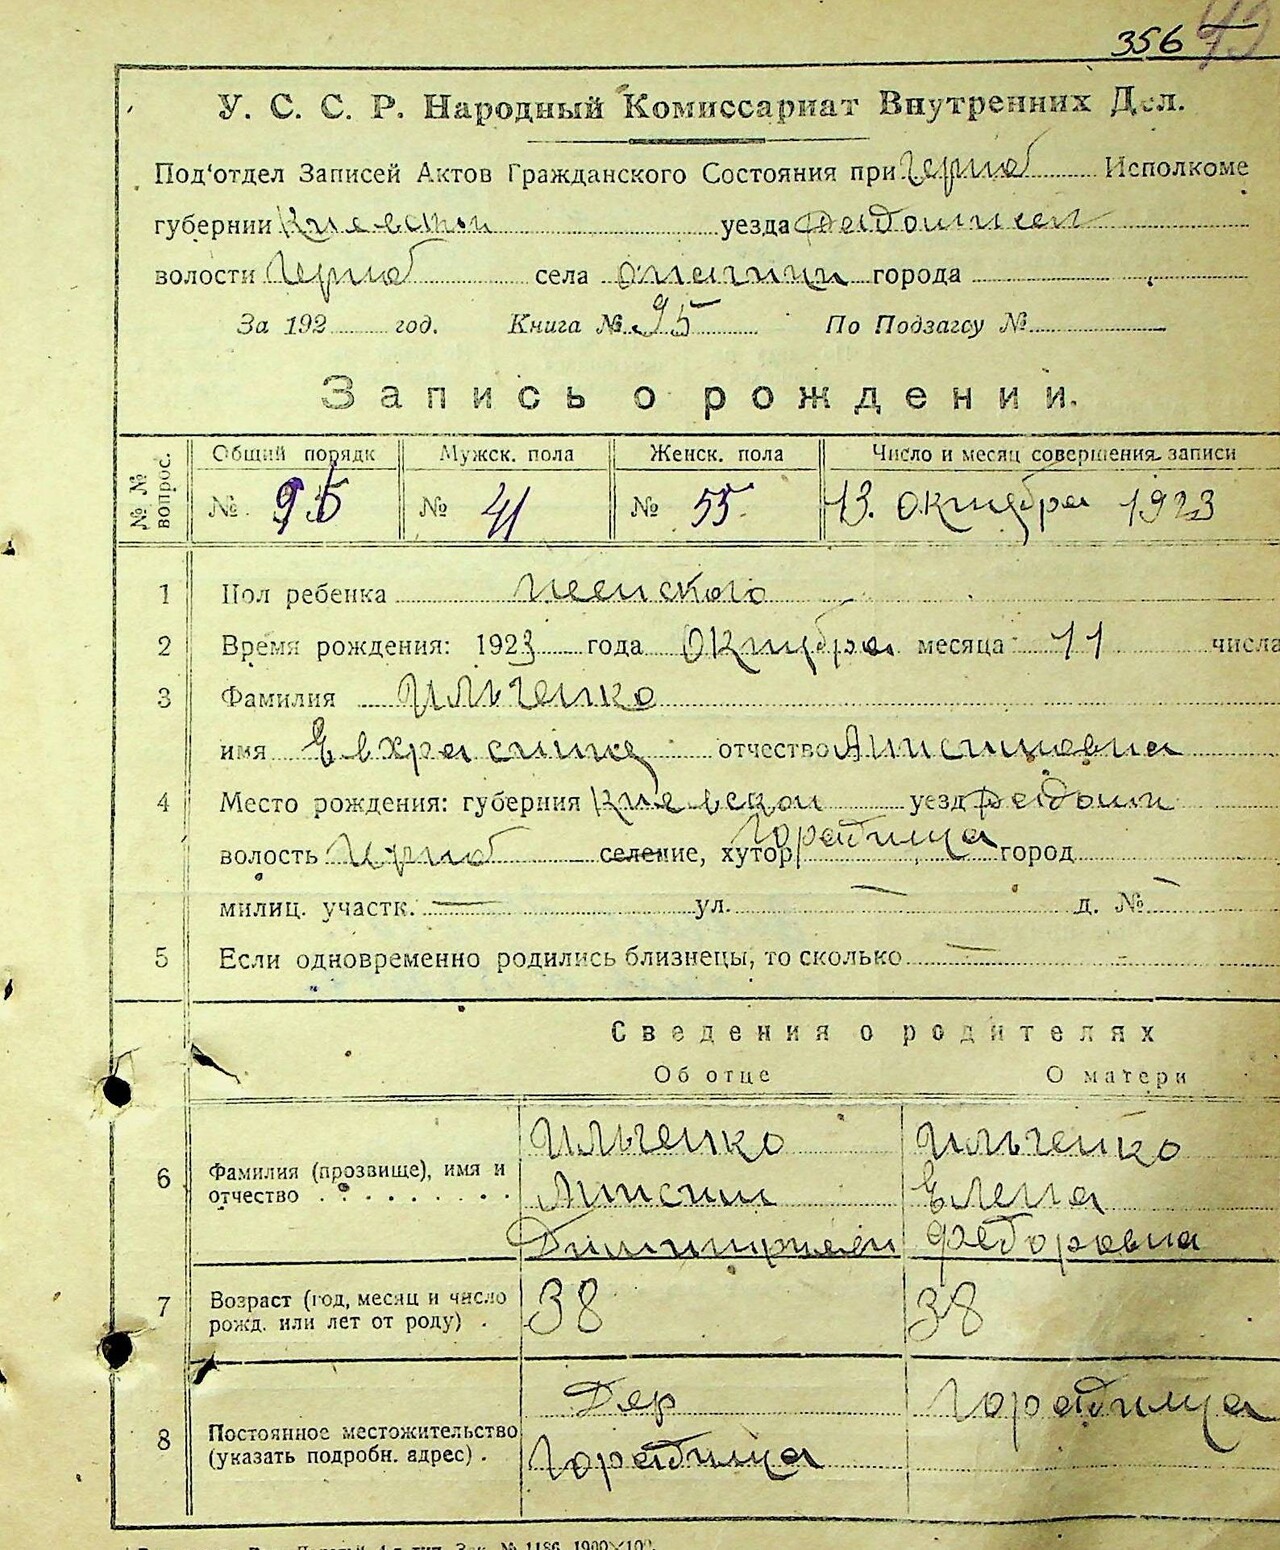 356
У. С. С. Р. Народный Комиссариат Внутренних Дел.
Под'отдел Записей Актов Гражданского Состояния при Черноб Исполкоме
губернии Киевской уезда
волости Черноб села города
За 192 год. Книга № 95 По Подзагсу №
Запись о рождении.
№№ вопрос. Общий порядк Мужск. пола Женск. пола Число и месяц совершения записи
№ 95 № 41 № 55 13. октября 1923
1 Пол ребенка женского
2 Время рождения: 1923 года Октября месяца 11 числа
3 Фамилия Ильченко
имя отчество Анисимовна
4 Место рождения: губерния Киевской уезд
волость Черноб селение, хутор город
милиц. участк. — ул. — д. № —
5 Если одновременно родились близнецы, то сколько —
Сведения о родителях
Об отце О матери
Ильченко Ильченко
6 Фамилия (прозвище), имя и отчество Анисим Елена
Федоровна
7 Возраст (год, месяц и число рожд. или лет от роду) . 38 38
Дер
8 Постоянное местожительство
(указать подробн. адрес) .